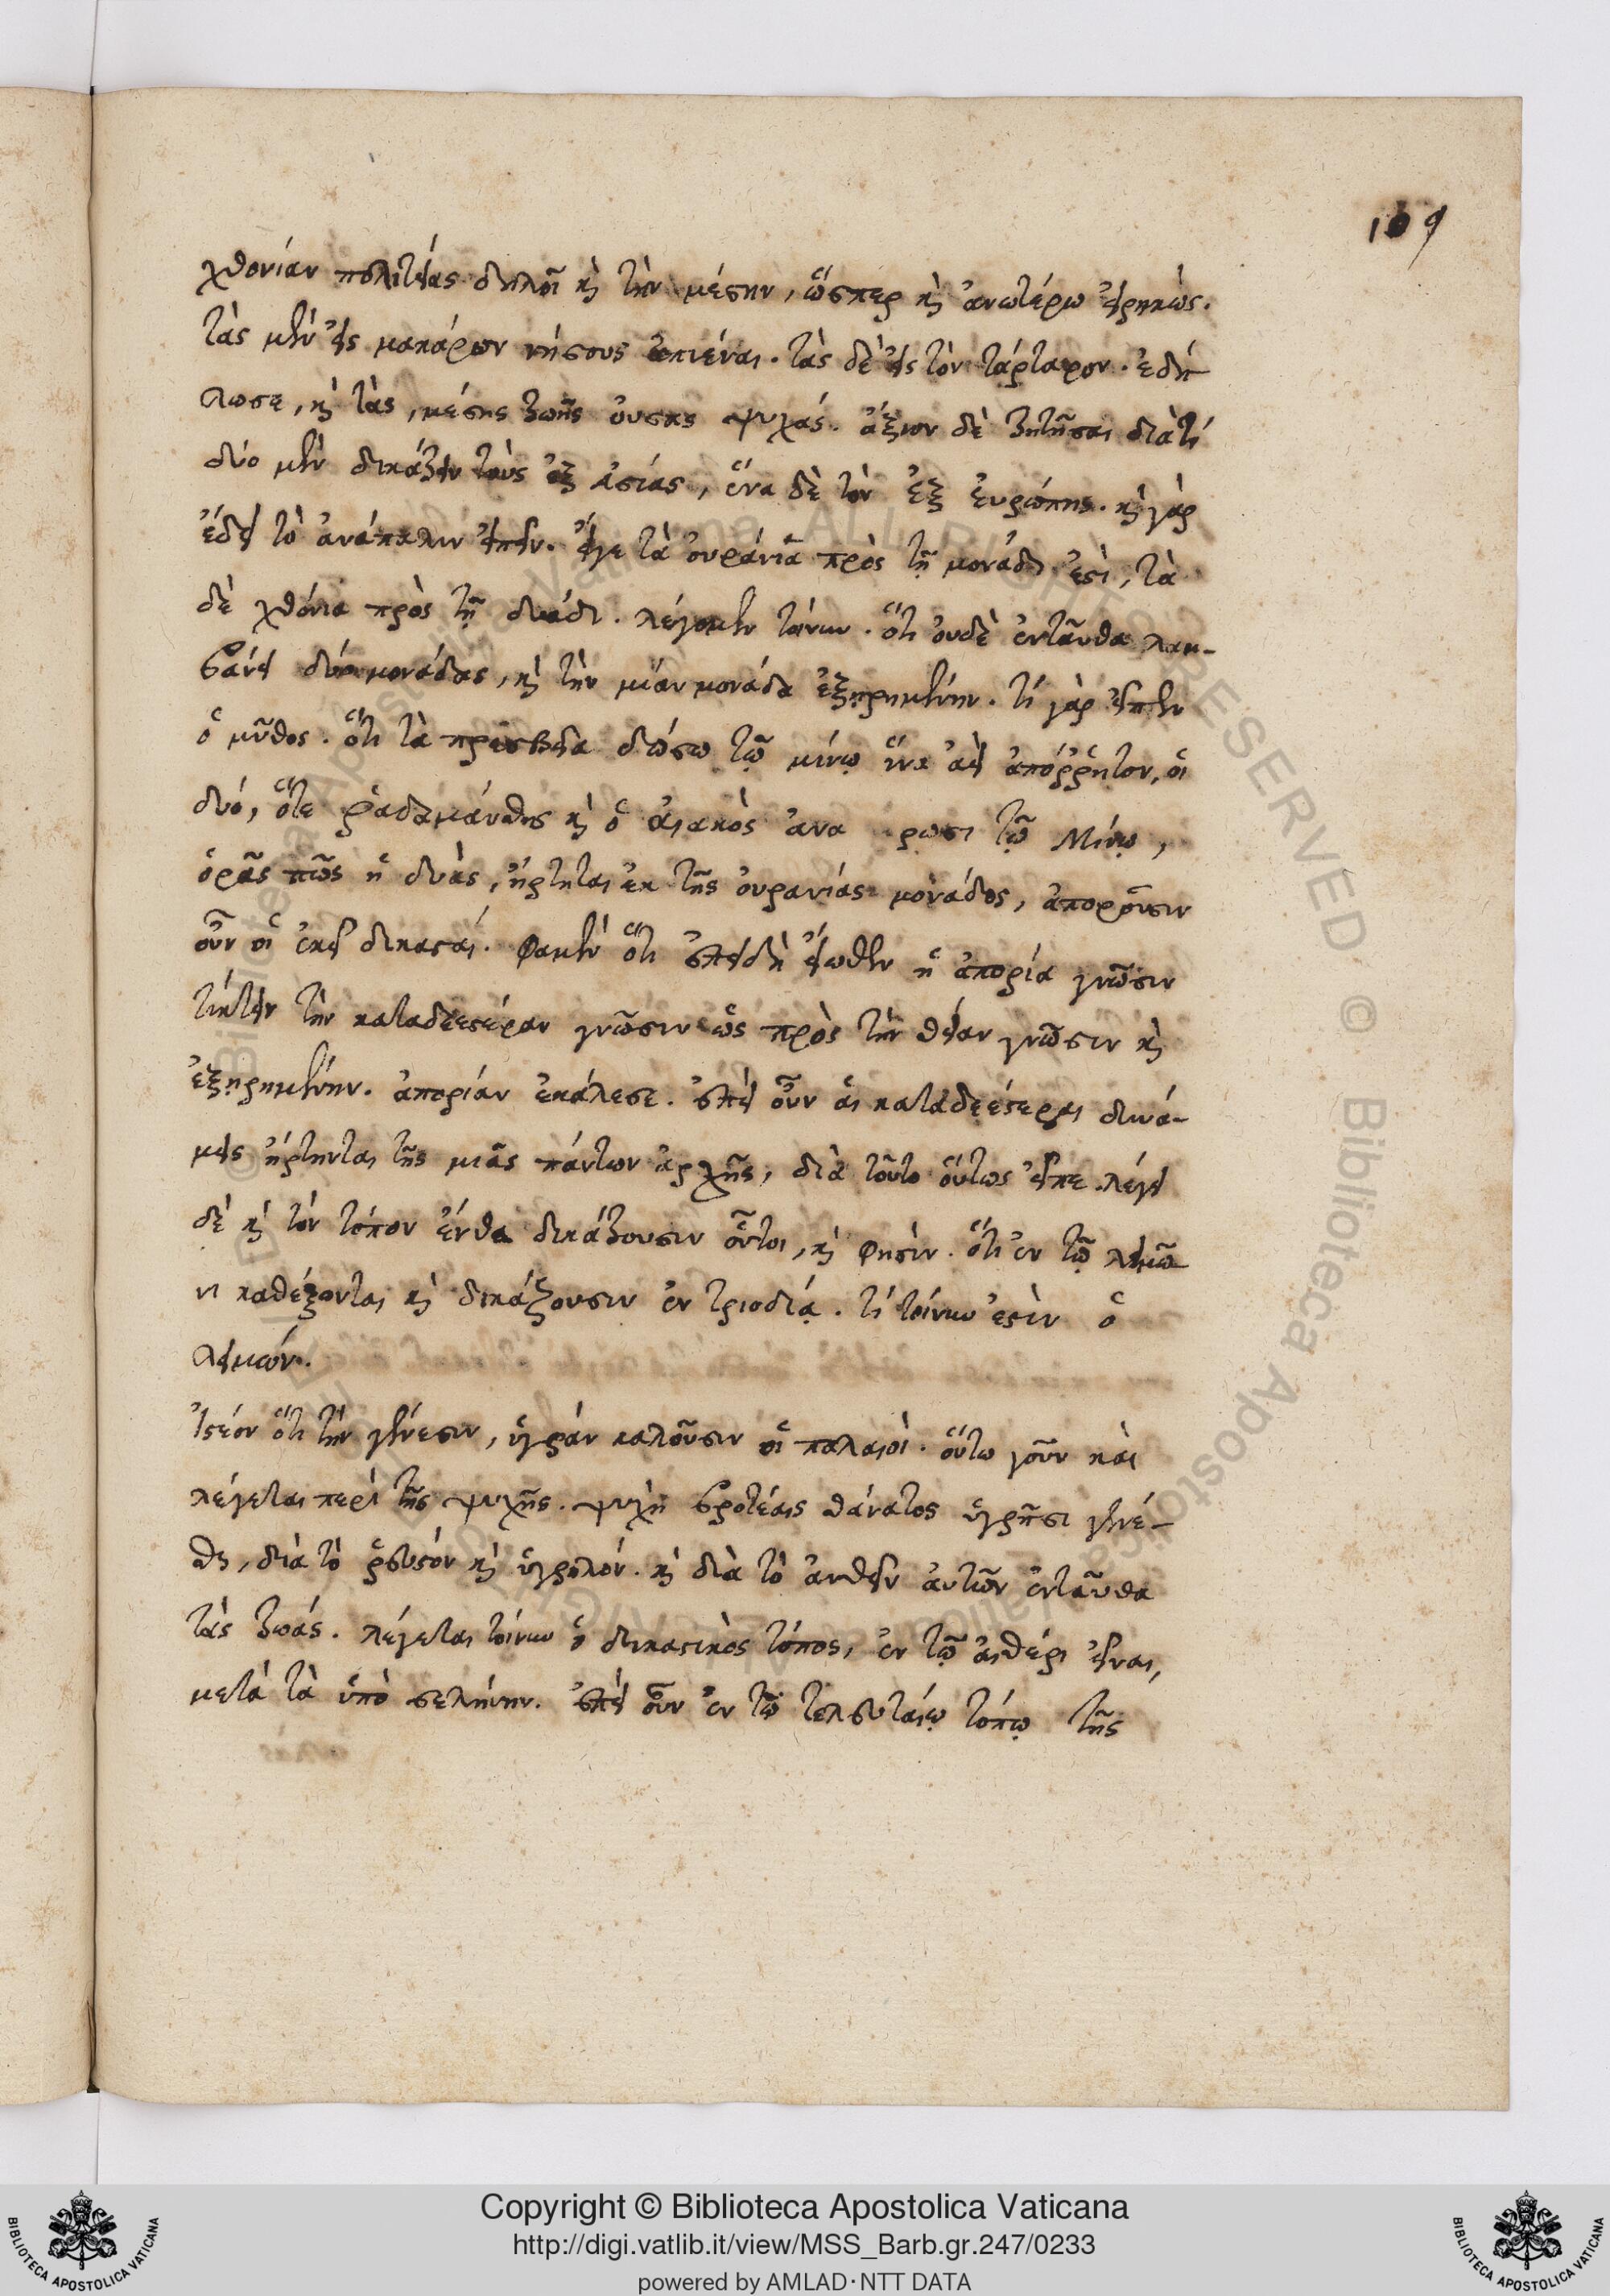 109
χθονίαν πολιτείας δηλοῖ κὶ τὴν μέσην, ὥσπερ κὶ ἀνωτέρω εἰρηκώς.
τὰς μὲν εἰς μακάρων νήσους ἀπιέναι. τὰς δὲ εἰς τὸν τάρταρον. ἐδή
λωσε, κὶ τὰς, μέσης ζωῆς οὐσας ψυχάς. ἄξιον δὲ ζητῆσαι διὰτί
δύο μὲν δικάζειν τοὺς ἐξ ἀσίας, ἕνα δὲ τὸν ἐξ ἐυρώπης. κὶ γὰρ
ἔδει τὸ ἀνάπαλιν εἰπεῖν. εἴγε τὰ ὀυράνια πρὸς τῇ μονάδι ἐστὶ, τὰ
δὲ χθόνια πρὸς τῇ δυάδι. λέγομεν τοίνυν. ὅτι ὀυδὲ ἐνταῦθα λαμ-
βάνει δύο μονάδας, κὶ τὴν μίαν μονάδα ἐξῃρημένην. τί γὰρ εἶπεν
ὁ μῦθος. ὅτι τὰ πρεσβεῖα δώσω τῷ μίνῳ ἵνα ἀεὶ ἀπόῤῥητον, οἱ
δυό, ὅτε ῥαδαμάνθης κὶ ὁ ἀιακὸς ἀνα ρωσι τῷ Μίνῳ,
ὁρᾶς πῶς ἡ δυὰς, ἤρτηται ἐκ τῆς ὀυρανίας μονάδος, ἀποροῦσιν
οὖν οἱ ἐκεῖ δικασταί. φαμὲν ὅτι ἐπειδὴ εἴωθεν ἡ ἀπορία γνῶσιν
τίκτειν τὴν καταδεεστέραν γνῶσιν ὡς πρὸς τὴν θείαν γνῶσιν κὶ
ἐξῃρημένην. ἀπορίαν ἐκάλεσε. ἐπεὶ οὖν ἁι καταδεέστεραι δυνά-
μεις ἤρτηνται τῆς μιᾶς πάντων ἀρχῆς, διὰ τοῦτο ὅυτως εἶπε. λέγει
δὲ κὶ τὸν τόπον ἔνθα δικάζουσιν οὗτοι, κὶ φησὶν. ὅτι ἐν τῷ λειμῶ
νι καθέζονται κὶ δικάζουσιν ἐν τριοδίᾳ. τί τοίνυν ἐστὶν ὁ
λειμών.
Ἰστέον ὅτι τὴν γένεσιν, ὑγρὰν καλοῦσιν οἱ παλαιοὶ. ὅυτω γοῦν καὶ
λέγεται περὶ τῆς ψυχῆς. ψυχὴ βροτέαις θάνατος ὑγρῇσι γενέ-
θῃ, διὰ τὸ ῥευστόν κὶ ὑγρολόν. κὶ διὰ τὸ ἀνθεῖν ἀυτῶν ἐνταῦθα
τὰς ζωάς. λέγεται τοίνυν ὁ δικαστικὸς τόπος, ἐν τῷ ἀιθέρι εἶναι,
μετὰ τὰ ὑπὸ σελήνην. ἐπεὶ οὖν ἐν τῷ τελευταίῳ τόπῳ τῆς
Copyright © Biblioteca Apostolica Vaticana
http://digi.vatlib.it/view/MSS_Barb.gr.247/0233
powered by AMLAD·NTT DATA